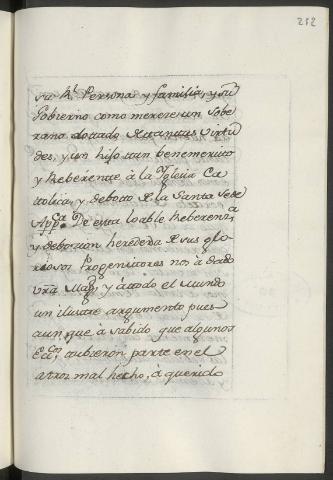 212
su Rl. Persona y familia, y su
Gobierno como merece un Sobe
rano dotado de tantas Virtu
des, y un hijo tan benemerito
y Reberente à la Yglesia Ca
tolica, y deboto de la Santa Sede
Appca. De esta loable Reberenza,
y deborion heredera de sus glo
riosos Progenitores nos à dado
Vra Magd. y à todo el Mundo
un ilustre argumento pues
aun que à sabido que algunos
Eccos. tubieron parte en el
atroz mal hecho, à querido